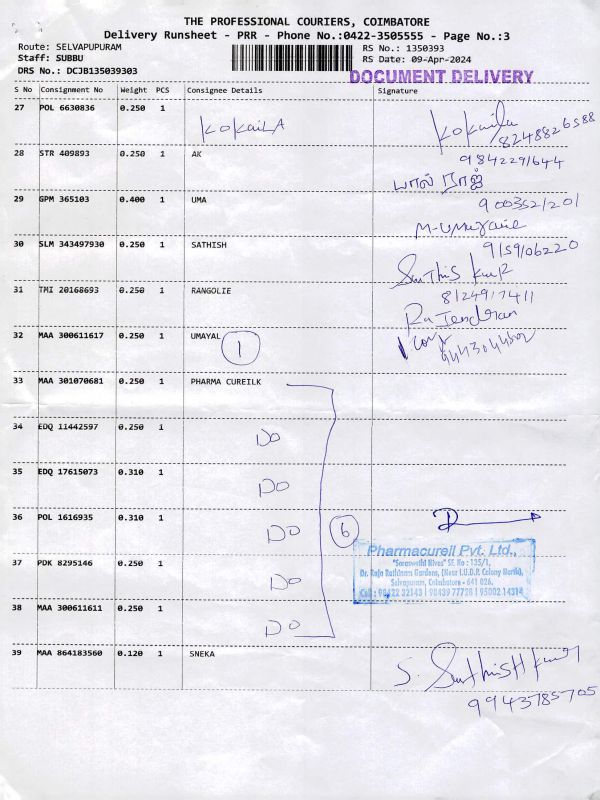 THE PROFESSIONAL COURIERS, COIMBATORE
Delivery Runsheet - PRR - Phone No.:0422-3505555 - Page No.:3
Route: SELVAPUPURAM RS No.: 1350393
Staff: SUBBU RS Date: 09-Apr-2024
DRS No.: DCJB135039303 DOCUMENT DELIVERY
S No Consignment No Weight PCS Consignee Details Signature
27 POL 6630836 0.250 1 KOKAILA Kokaila
8248826588
28 STR 409893 0.250 1 AK 9842291644
பால் ராஜ்
29 GPM 365103 0.400 1 UMA 9003521201
30 SLM 343497930 0.250 1 SATHISH 9159106220
31 TMI 20168693 0.250 1 RANGOLIE 8124917411
Rajendran
32 MAA 300611617 0.250 1 UMAYAL 1
33 MAA 301070681 0.250 1 PHARMA CUREILK
34 EDQ 11442597 0.250 1 DO
35 EDQ 17615073 0.310 1 DO
36 POL 1616935 0.310 1 DO 6
Pharmacureil Pvt. Ltd.,
"Saraswathi Nivas" SF. No : 135/1,
37 PDK 8295146 0.250 1 DO
Dr. Raja Rathinam Gardens, (Near I.U.D.P. Colony North),
Selvapuram, Coimbatore - 641 026.
Cell : 98422 32143 | 98439 77728 | 95002 14314
38 MAA 300611611 0.250 1 DO
39 MAA 864183560 0.120 1 SNEKA
9943785705